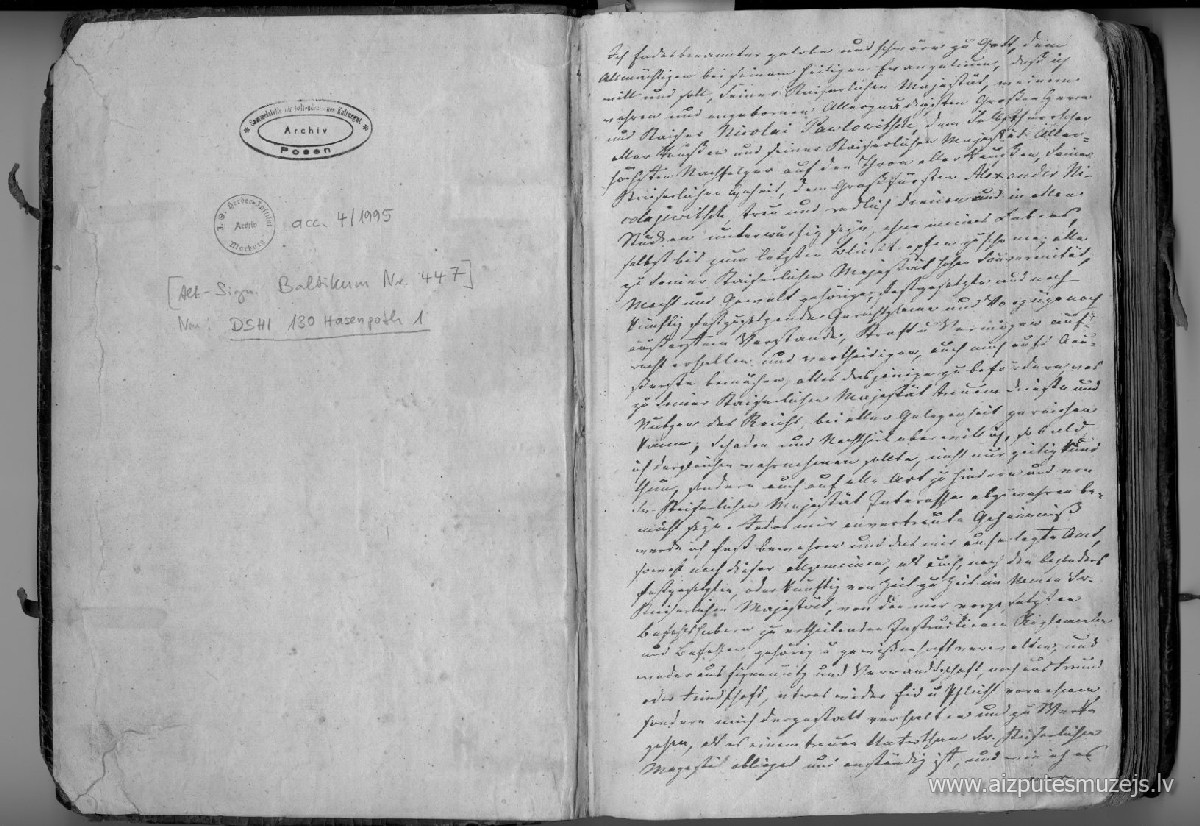 Sammelstelle für
Archiv
Posen
J. G. Herder-Institut
Archiv
Marburg
acc. 4/1995
[Alt-Sign. Baltikum Nr. 447]
Neu: DSHI 130 Hasenpoth 1
Ich Endesbenannter gelobe und schwöre zu Gott, dem
Allmächtigen bei seinem heiligen Evangelium, daß ich
will und soll, Seiner Kaiserlichen Majestät, meinem
wahren und angebornen Allergnädigsten Großen Herrn
und Kaiser Nicolai Pawlowitsch, dem Selbstherrscher
aller Reußen und Seiner Kaiserlichen Majestät Aller-
höchsten Nachfolger auf den Thron aller Reußen, Seiner
Kaiserlichen Hoheit, dem Großfürsten Alexander Ni-
colajewitsch, treu und redlich dienen und in allen
Stücken unterwürfig seyn, ohne meines Leibes,
selbst bis zum letzten Bluts
zu Seiner Kaiserlichen Majestät hohen Souverainität,
Macht und Gewalt gehörige, festgesetzte und noch
künftig festzusetzende Gerechtsame und Vorzüge nach
äußerstem Verstande, Kraft u Vermögen auf-
recht erhalten und vertheidigen, auch mich aufs Äu-
ßerste bemühen, alles dasjenige zu befördern was
zu Seiner Kaiserlichen Majestät treuem Dienste und
Nutzen des Reichs, bei aller Gelegenheit gereichen
kann; Schaden und Nachtheil aber will ich, sobald
ich dergleichen wahrnehmen sollte, nicht nur zeitig kund
thun, sondern auch auf alle Art zu hindern und von
Kaiserlichen Majestät Interesse abzuwehren be-
müht seyn. Jedes mir anvertraute Geheimniß
werde ich fest bewahren und das mir auferlegte Amt,
sowol nach dieser allgemeinen, als auch nach der besonders
festgesetzten, oder künftig von Zeit zu Zeit im Namen Sr.
Kaiserlichen Majestät, von den mir vorgesetzten
Befehlshabern zu ertheilenden Instructionen Reglements
und Befehlen, gehörig u gewissenhaft verwalten, und
weder aus Eigennutz und Verwandtschaft, noch aus Freund
oder Feindschaft, etwas wider Eid u Pflicht vornehmen
sondern mich dergestalt verhalten und zu Werke
gehen, als es einem treuen Unterthan Sr. Kaiserlichen
Majestät oblieget und anständig ist, und wie ich es
www.aizputesmuzejs.lv